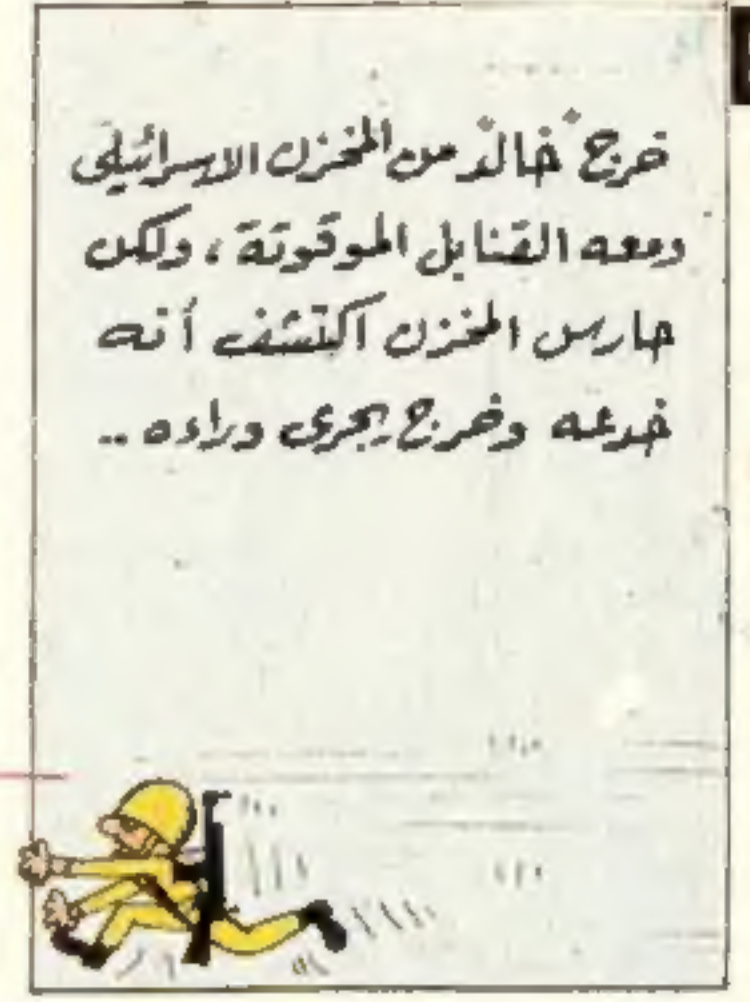 خرج "خالد" من المخزن الاسرائيلى
ومعه القنابل الموقوتة ، ولكن
حارس المخزن اكتشف أنه
خدعه وخرج يجرى وراءه ..